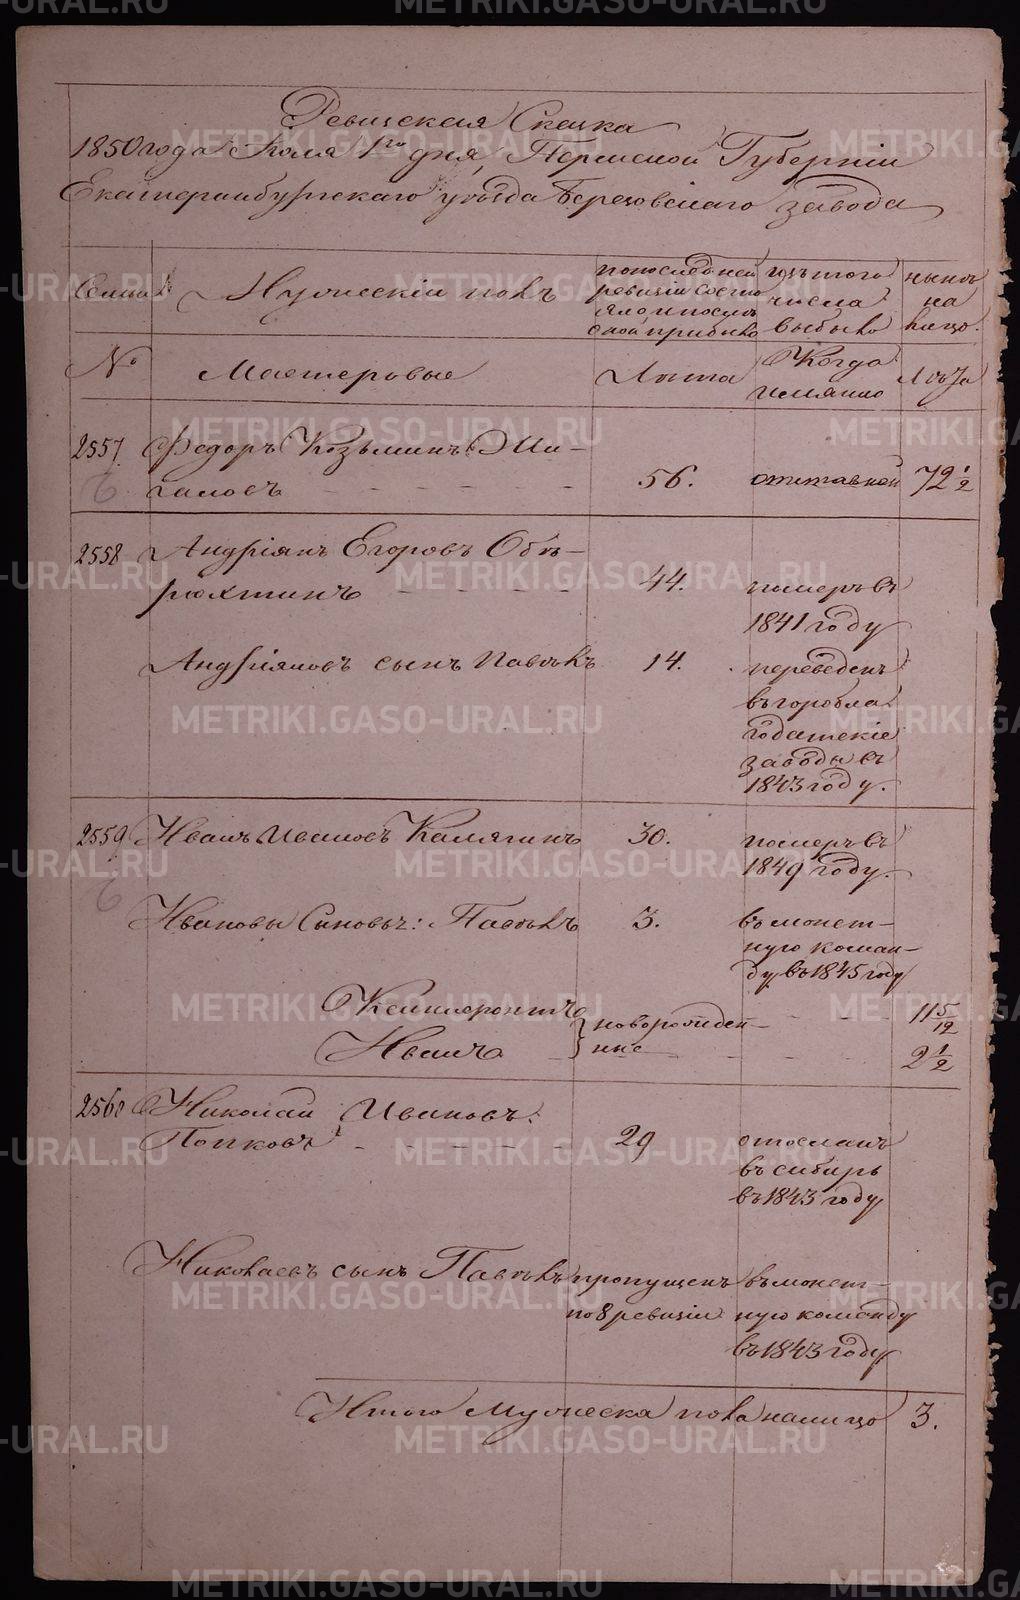 Ревизская Сказка
1850 года Июля 1го дня, Пермской Губернiи
Екатеринбургскаго уѣзда Березовскаго завода
Семьи Мужескiй полъ
по последней ревизiи состояло и после оной прибыло
изъ того числа выбыло
нынѣ на лицо.
№ Мастеровые Лѣта Когда имянно Лѣта
2557. Федоръ Козьминъ
6 56. отставной 72 1/2
2558 Андрiянъ Егоровъ
44. померъ въ
1841 году
Андрiяновъ сынъ Павелъ 14. переведенъ
въ горобла
годатскiе
заводы въ
1843 году.
2559 Иванъ Ивановъ Калягинъ 30. померъ въ
1849 году.
6
Ивановы Сыновья: Павелъ 3. въ монет-
ную коман-
ду въ 1845 году
новорожден- 11 5/12
Иванъ ные 2 1/2
2560 Николай Ивановъ
Попковъ 29 отосланъ
въ сибирь
въ 1843 году
Николаевъ сынъ Павелъ пропущенъ въ монет-
по 8 ревизiи ную команду
въ 1843 году
Итого Мужеска пола налицо 3.
METRIKI.GASO-URAL.RU